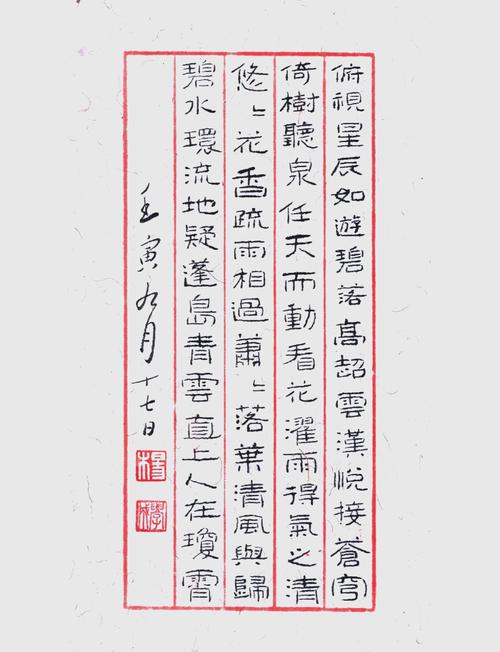 俯視星辰如遊碧落髙超雲漢悅接蒼穹
倚樹聽泉任天而動看花濯雨得氣之清
悠〻花香疏雨相過蕭〻落葉清風與歸
碧水環流地疑蓬島青雲直上人在瓊霄
壬寅九月十七日